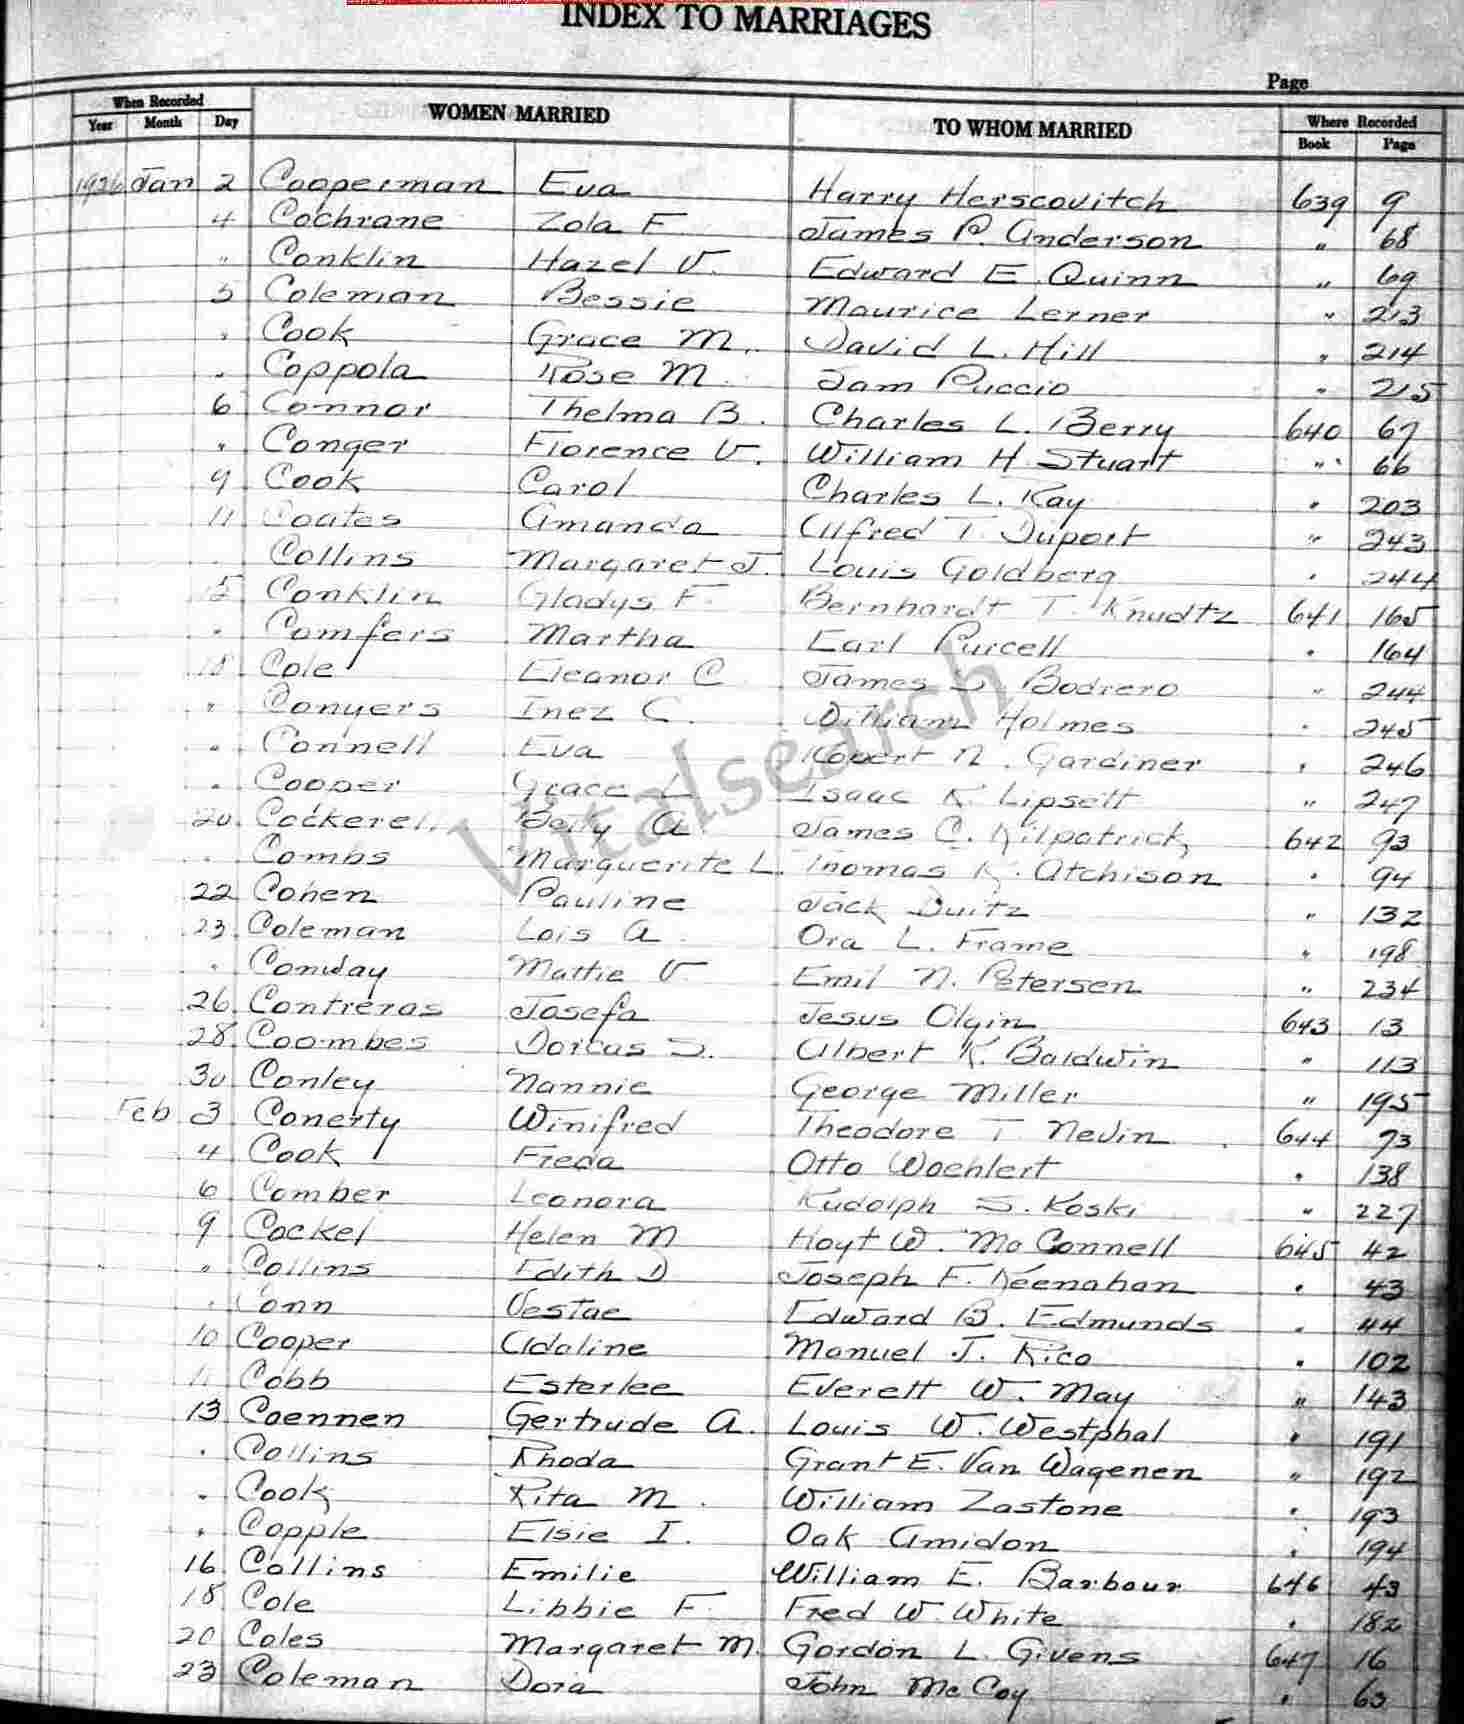 INDEX TO MARRIAGES
Page
When Recorded WOMEN MARRIED TO WHOM MARRIED Where Recorded
Year Month Day Book Page
1926 Jan 2 Cooperman Eva Harry Herscovitch 639 9
4 Cochrane Zola F. James P. Anderson " 68
" Conklin Hazel V. Edward E. Quinn " 69
5 Coleman Bessie Maurice Lerner " 213
" Cook Grace M. David L. Hill " 214
" Coppola Rose M. Sam Puccio " 215
6 Connor Thelma B. Charles L. Berry 640 67
" Conger Florence V. William H. Stuart " 66
9 Cook Carol Charles L. Ray " 203
11 Coates Amanda Alfred T. Duport " 243
Collins Margaret J. Louis Goldberg " 244
15 Conklin Gladys F. Bernhardt T. Knudtz 641 165
" Comfers Martha Earl Purcell " 164
18 Cole Eleanor C. James S. Bodrero " 244
" Conyers Inez C. William Holmes " 245
" Connell Eva Robert N. Gardiner " 246
" Cooper Grace L. Isaac K. Lipsett " 247
20 Cockerell Betty A. James C. Kilpatrick 642 93
" Combs Marguerite L. Thomas K. Atchison " 94
22 Cohen Pauline Jack Duitz " 132
23 Coleman Lois A. Ora L. Frame " 198
" Conway Mattie V. Emil N. Petersen " 234
26 Contreras Josefa Jesus Olgin 643 13
28 Coombes Dorcas S. Albert K. Baldwin " 113
30 Conley Nannie George Miller " 195
Feb 3 Conerty Winifred Theodore T. Nevin 644 73
4 Cook Freda Otto Woehlert " 138
6 Comber Leonora Rudolph S. Koski " 227
9 Cockel Helen M Hoyt W. McConnell 645 42
" Collins Edith D Joseph F. Keenahan " 43
" Conn Vestae Edward B. Edmunds " 44
10 Cooper Adaline Manuel J. Rico " 102
11 Cobb Esterlee Everett W. May " 143
13 Coennen Gertrude A. Louis W. Westphal " 191
" Collins Rhoda Grant E. Van Wagenen " 192
" Cook Rita M. William Zastone " 193
" Copple Elsie I. Oak Amidon " 194
16 Collins Emilie William E. Barbour 646 43
18 Cole Libbie F. Fred W. White " 182
20 Coles Margaret M. Gordon L. Givens 647 16
23 Coleman Dora John McCoy " 63
Vitalsearch